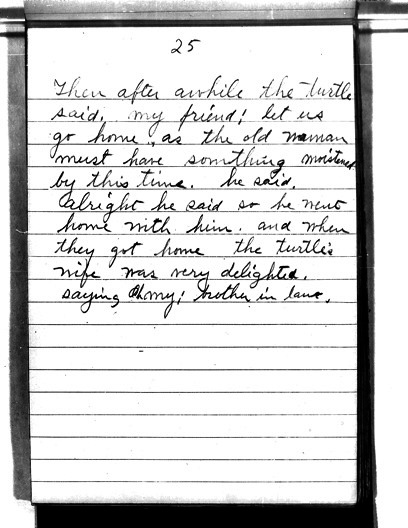 25
Then after awhile the turtle
said, my friend! let us
go home, as the old woman
must have something moistened
by this time. he said.
Alright he said so he went
home with him. and when
they got home the turtle's
wife was very delighted.
saying Oh my! brother in law,